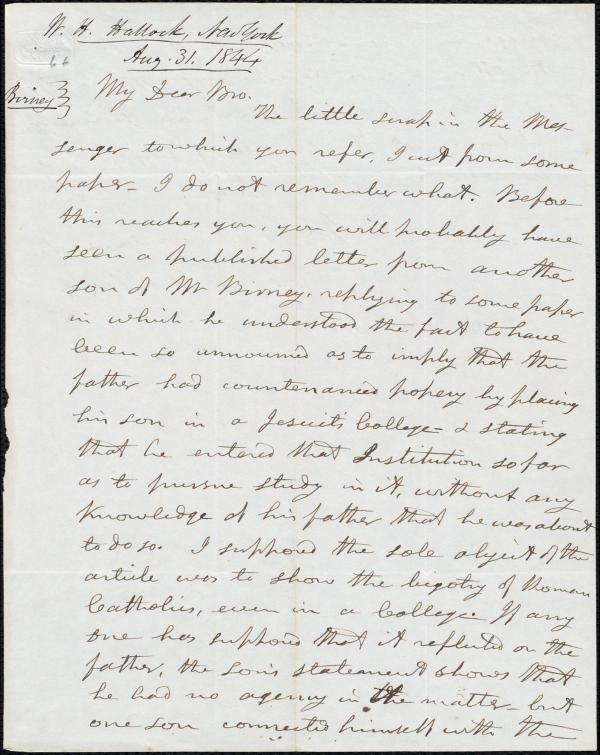 W. H. Hallock, New York
Aug. 31. 1844
66
Birney
My Dear Bro.
The little scrap in the Mes-
senger to which you refer, I cut from some
paper - I do not remember what. Before
this reaches you, you will probably have
seen a published letter from another
son of Mr Birney, replying to some paper
in which he understood the fact to have
been so announced as to imply that the
father had countenanced popery by placing
his son in a Jesuit's College - & stating
that he entered that Institution so far
as to pursue study in it, without any
knowledge of his father that he was about
to do so. I supposed the sole object of the
article was to show the bigotry of Roman
Catholics, even in a College. If any
one has supposed that it reflected on the
father, the son's statement shows that
he had no agency in the matter - but
one son connected himself with the